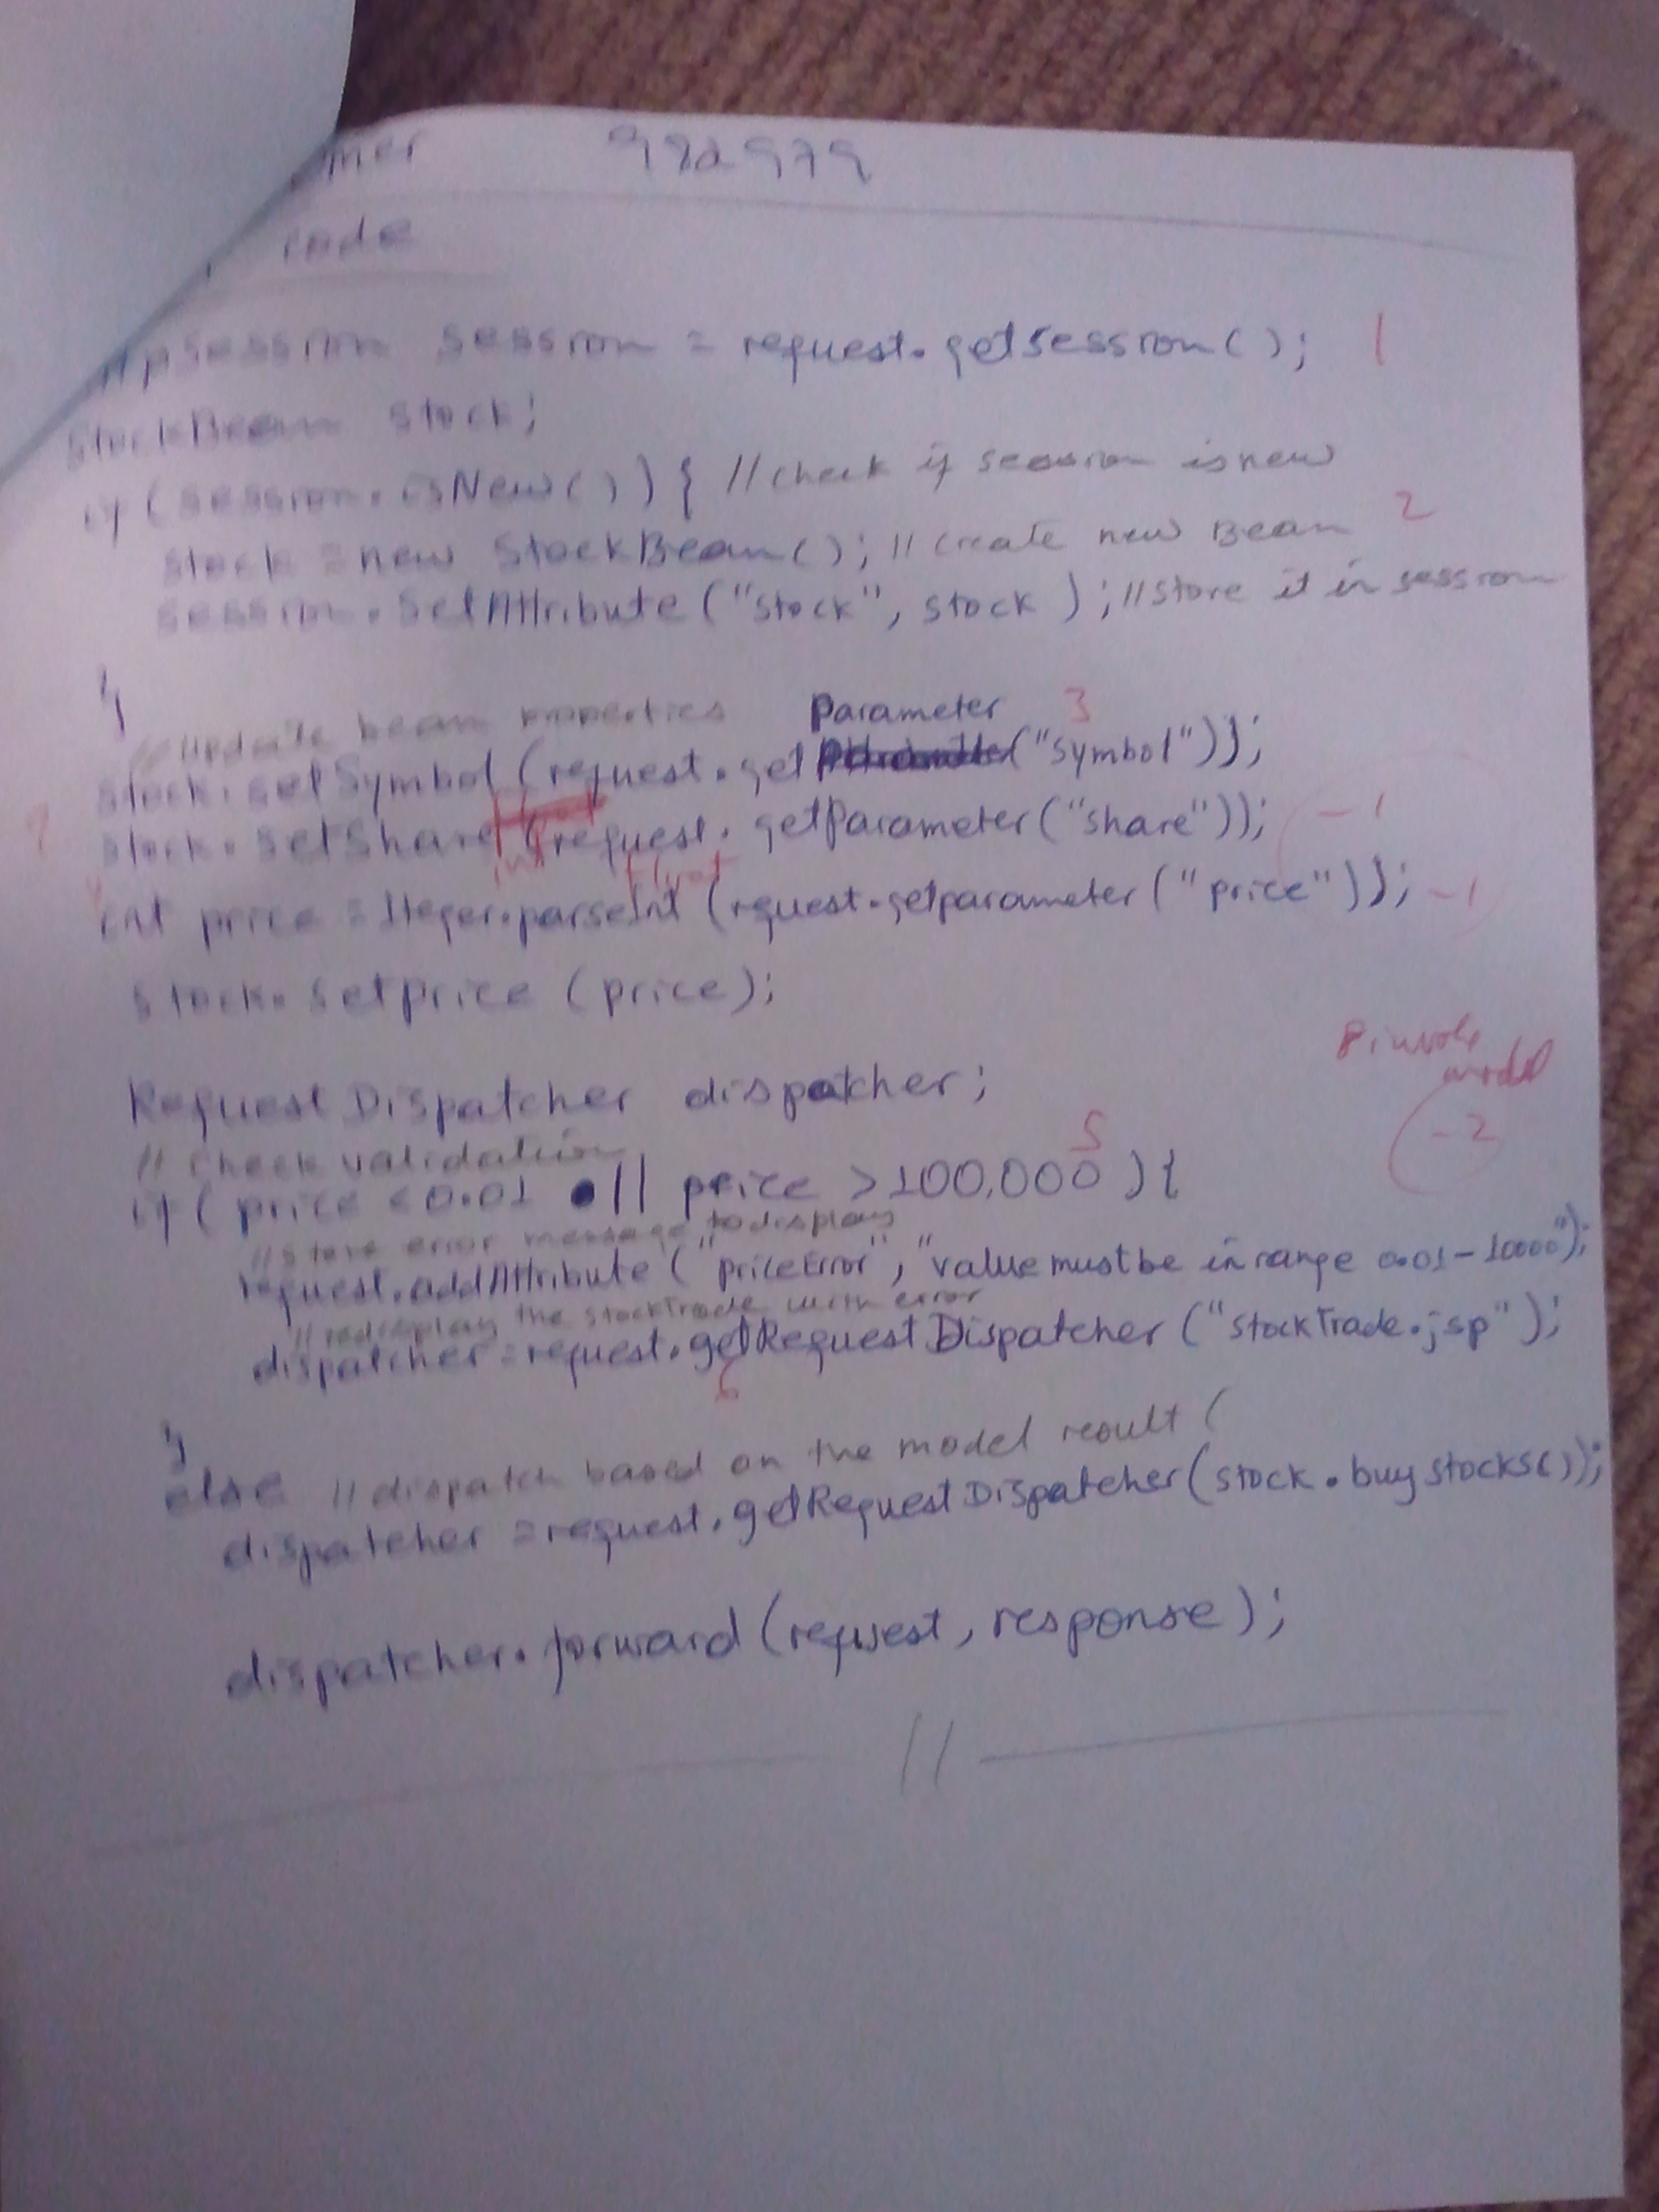 982979
code
session = request.getsession(); 1
StockBean stock;
if (session.isNew()) { // check if session is new
stock = new StockBean(); // create new Bean 2
session.setAttribute ("stock", stock ); // store it in session
}
// Update bean properties Parameter 3
stock.setSymbol (request.get ("symbol"));
stock.setShare (request.getParameter ("share")); -1
int float
int price = Iteger.parseInt (request.getparameter ("price")); -1
stock.setprice (price);
model
Request Dispatcher dispatcher;
-2
// check validation 5
if ( price < 0.01 || price > 100,000 ) {
// Store error message to display
request.addAttribute ( "priceError", "value must be in range 0.01 - 10000");
// redisplay the stockTrade with error
dispatcher = request.getRequest Dispatcher ("stockTrade.jsp");
6
}
else // dispatch based on the model result (
dispatcher = request.getRequest Dispatcher (stock.buystocks());
dispatcher.forward (request, response);
//